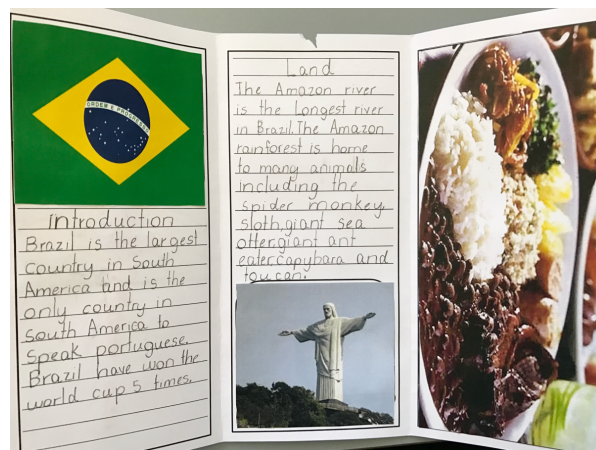 ORDEM E PROGRESSO
introduction
Brazil is the largest
country in South
America and is the
only country in
south America to
speak portuguese.
Brazil have won the
world cup 5 times.
Land
The Amazon river
is the Longest river
in Brazil. The Amazon
rainforest is home
to many animals
including the
spider monkey,
sloth, giant sea
otter, giant ant
eater, capybara and
toucan.